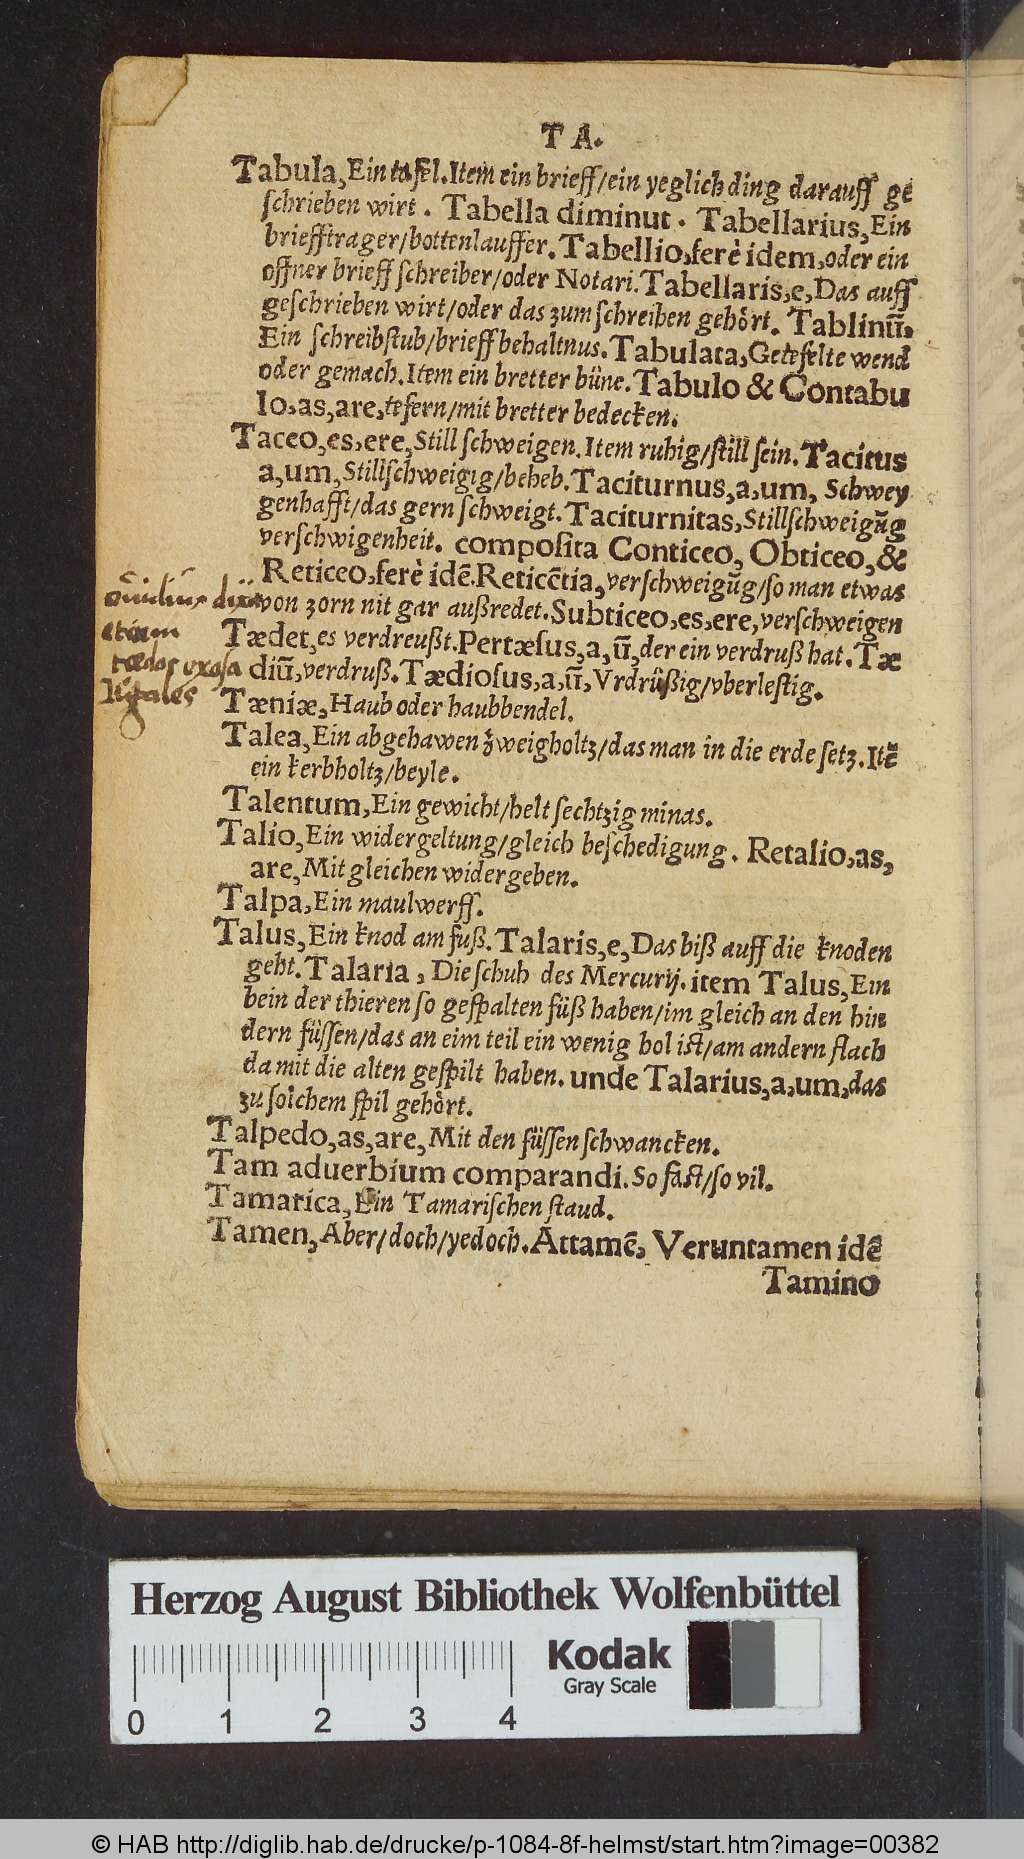 T A.
Tabula, Ein tafel. Item ein brieff/ein yeglich ding darauff ge
schrieben wirt. Tabella diminut. Tabellarius, Ein
briefftrager/bottenlauffer. Tabellio, ferè idem, oder ein
offner brieff schreiber/oder Notari. Tabellaris, e, Das auff
geschrieben wirt/oder das zum schreiben gehört. Tablinũ,
Ein schreibstub/brieff behaltnus. Tabulata, Getefelte wend
oder gemach. Item ein bretter büne. Tabulo & Contabu
lo, as, are, tefern/mit bretter bedecken.
Taceo, es, ere, Still schweigen. Item ruhig/still sein. Tacitus
a, um, Stillschweigig/beheb. Taciturnus, a, um, Schwey
genhafft/das gern schweigt. Taciturnitas, Stillschweigũg
verschwigenheit. composita Conticeo, Obticeo, &
Reticeo, ferè idẽ. Reticẽtia, verschweigũg/so man etwas
von zorn nit gar außredet. Subticeo, es, ere, verschweigen
Ouidius dixit
etiam
tædas exosa
iugales
Tædet, es verdreußt. Pertæsus, a, ũ, der ein verdruß hat. Tæ
diũ, verdruß. Tædiosus, a, ũ, Vrdrüßig/vberlestig.
Tæniæ, Haub oder haubbendel.
Talea, Ein abgehawen zweigholtz/das man in die erde setz. Itẽ
ein kerbholtz/beyle.
Talentum, Ein gewicht/helt sechtzig minas.
Talio, Ein widergeltung/gleich beschedigung. Retalio, as,
are, Mit gleichen widergeben.
Talpa, Ein maulwerff.
Talus, Ein knod am fuß. Talaris, e, Das biß auff die knoden
geht. Talaria, Die schuh des Mercurij. item Talus, Ein
bein der thieren so gespalten füß haben/im gleich an den hin
dern füssen/das an eim teil ein wenig hol ist/am andern flach
da mit die alten gespilt haben. unde Talarius, a, um, das
zu solchem spil gehört.
Talpedo, as, are, Mit den füssen schwancken.
Tam aduerbium comparandi. So fast/so vil.
Tamarica, Ein Tamarischen staud.
Tamen, Aber/doch/yedoch. Attamẽ, Veruntamen idẽ
Tamino
Herzog August Bibliothek Wolfenbüttel
Kodak
Gray Scale
0 1 2 3 4
© HAB http://diglib.hab.de/drucke/p-1084-8f-helmst/start.htm?image=00382